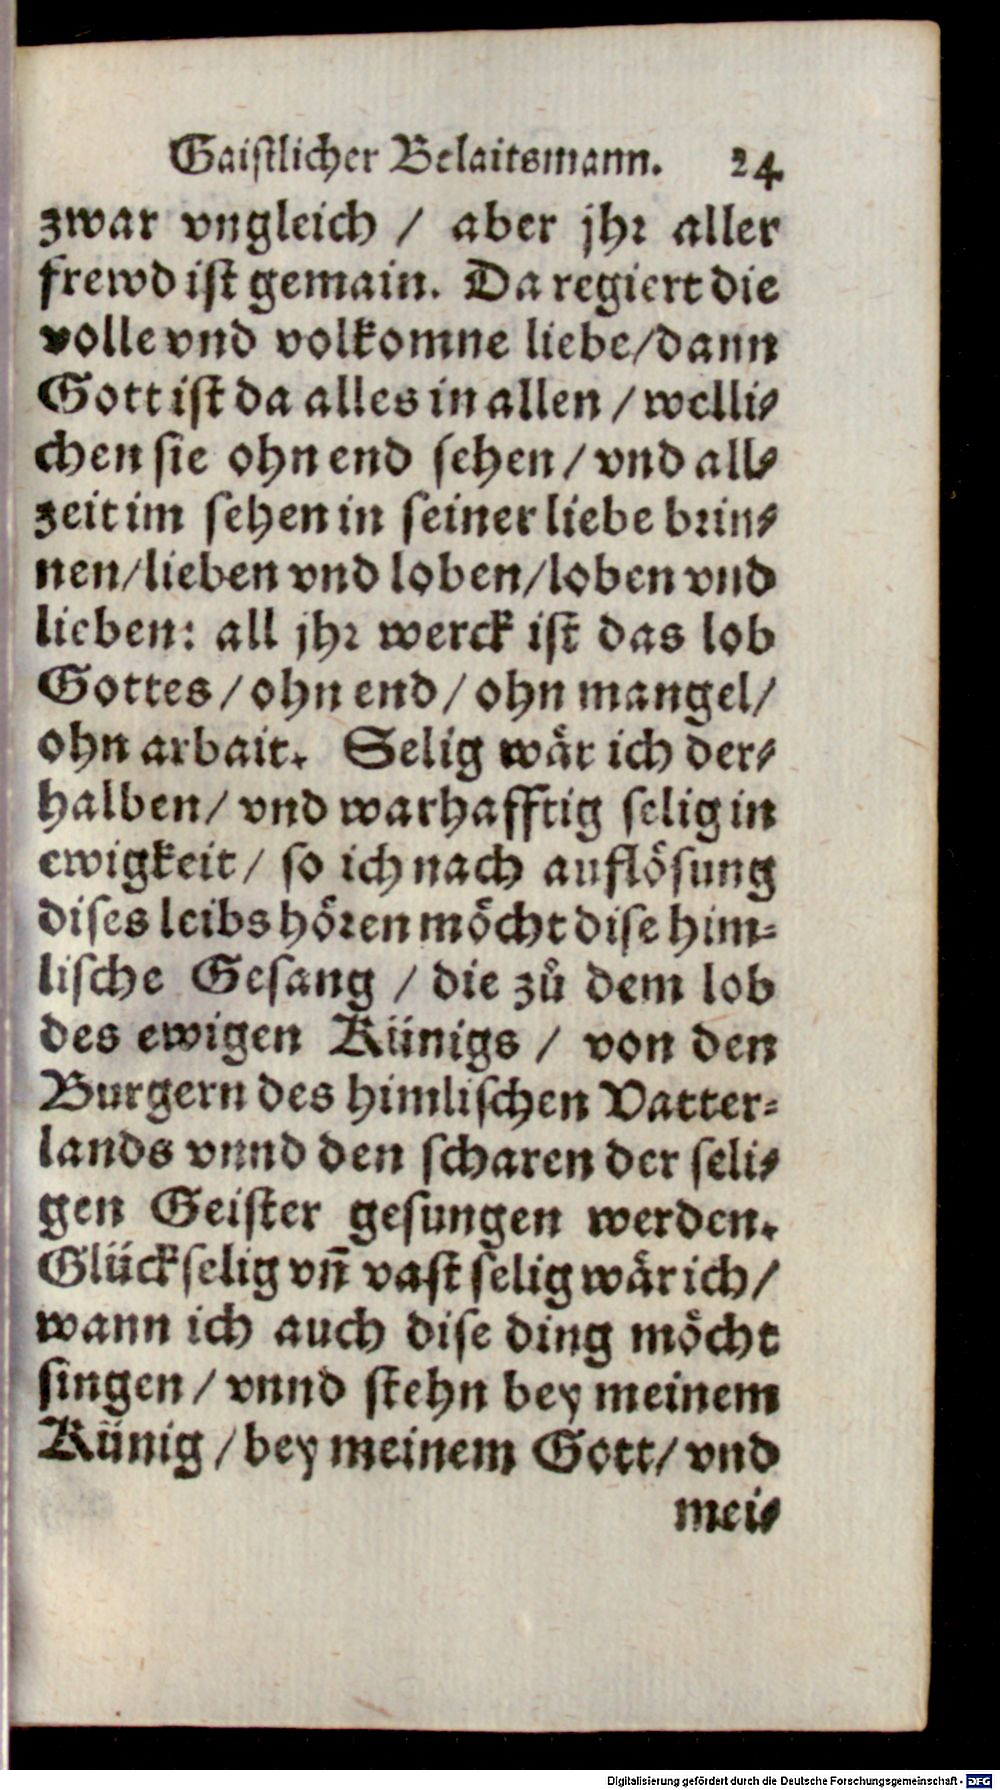 Gaistlicher Belaitsmann. 24
zwar vngleich / aber jhr aller
frewd ist gemain. Da regiert die
volle vnd volkomne liebe/dann
Gott ist da alles in allen / welli⸗
chen sie ohn end sehen / vnd all⸗
zeit im sehen in seiner liebe brin⸗
nen/lieben vnd loben/loben vnd
lieben: all jhr werck ist das lob
Gottes / ohn end / ohn mangel/
ohn arbait. Selig wär ich der⸗
halben/ vnd warhafftig selig in
ewigkeit / so ich nach auflösung
dises leibs hören möcht dise him⸗
lische Gesang / die zů dem lob
des ewigen Künigs / von den
Burgern des himlischen Vatter⸗
lands vnnd den scharen der seli⸗
gen Geister gesungen werden.
Glückselig vn̄ vast selig wär ich/
wann ich auch dise ding möcht
singen / vnnd stehn bey meinem
Künig / bey meinem Gott/ vnd
mei⸗
Digitalisierung gefördert durch die Deutsche Forschungsgemeinschaft - DFG